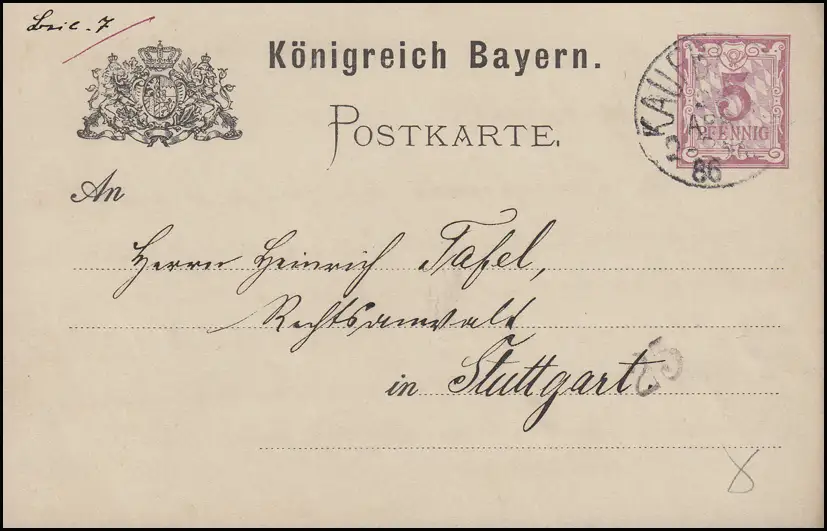 Beil. 7
Königreich Bayern.
POSTKARTE.
5
PFENNIG
KAUF
86
An
Herrn Heinrich Tafel,
Rechtsanwalt
in Stuttgart.
25